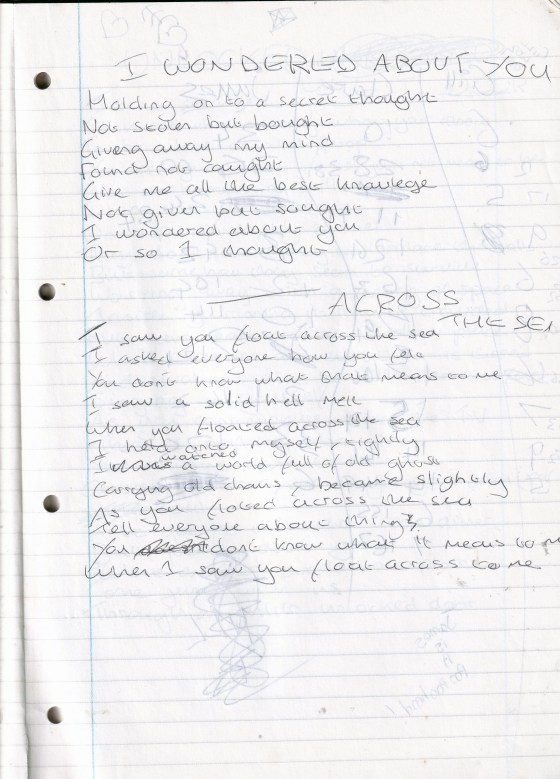 I WONDERED ABOUT YOU
Holding on to a secret thought
Not stolen but bought
Giveng away my mind
Found not caught
Give me all the best knowlege
Not given but sought
I wondered about you
Or so I thought
ACROSS
THE SEA
I saw you float across the sea
I asked everyone how you felt
You don't know what that means to me
I saw a solid hell melt
When you floated across the sea
I held onto myself, tightly
I watched a world full of old ghosts
Carrying old chains, became slightly
As you floted across the sea
Tell everyone about things
You dont know what it means to m
When I saw you float across to me